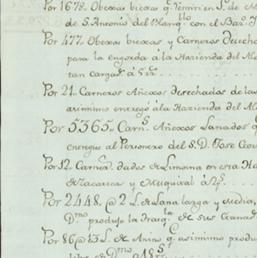 Por 1678. Obexas biexas q. Vermn en S.n de M
de S. Antonio del Blanq.llo con el Bar.o J
Por 477. Obexas biexas y Carneros desecha
para la engorda à la Hacienda del Ale
tan cargad.s à 5 rr.
Por 21. Carneros Añexos desechados de las
asimismo entregò à la Hacienda del M
Por 5365. Carn.s Añexos Lanados q
entregué al Personero del S.D. Jose Cov
Por 12. Carne.s dados de Limosna en esta H
de Tacarica y Mesquital à 2 p.s
Por 2448. @ 2 L de Lana larga y media,
D.mo produjo la Trasq.a de sus Ganad
Por 86 @ 13 L. de Anino q. asimismo produ